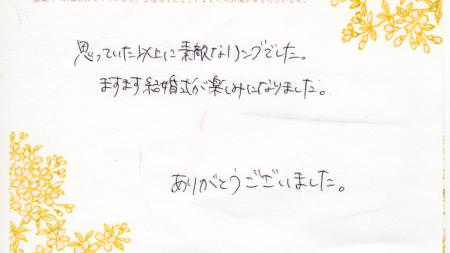 思っていた以上に素敵なリングでした。
ますます結婚式が楽しみになりました。
ありがとうございました。